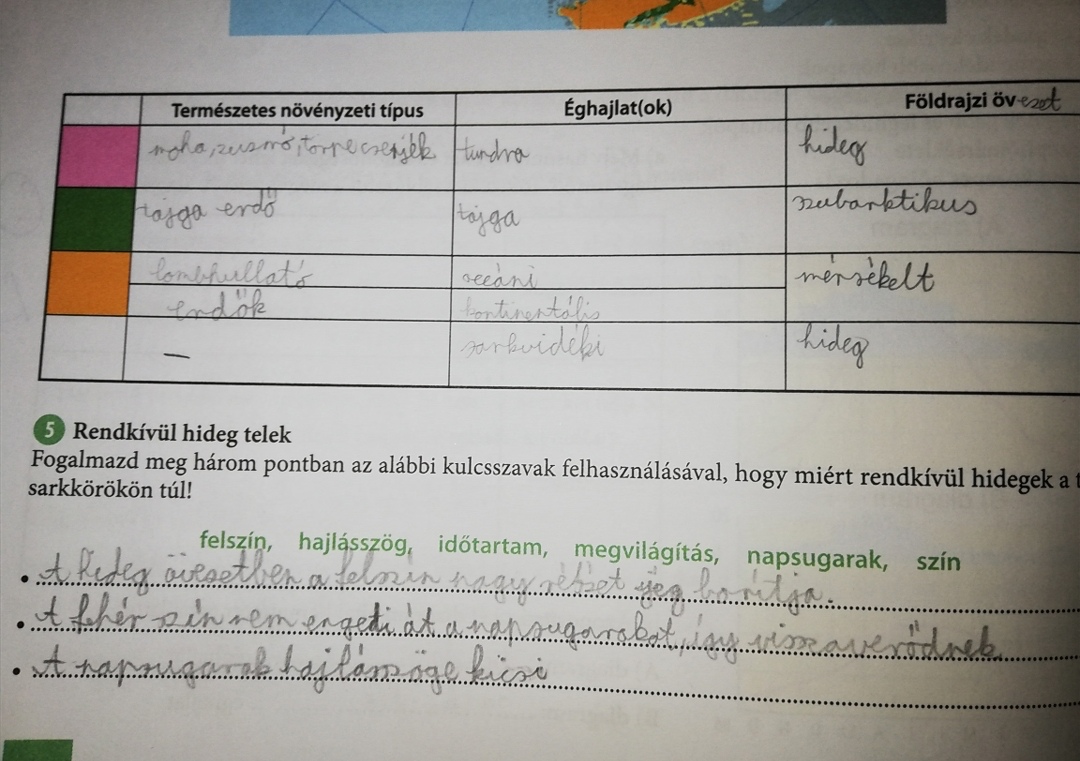 Természetes növényzeti típus Éghajlat(ok) Földrajzi övezet
moha, zuzmó, törpecserjék tundra hideg
tajga erdő tajga szubarktikus
lombhullató óceáni mérsékelt
erdők kontinentális
— sarkvidéki hideg
5 Rendkívül hideg telek
Fogalmazd meg három pontban az alábbi kulcsszavak felhasználásával, hogy miért rendkívül hidegek a t
sarkkörökön túl!
felszín, hajlásszög, időtartam, megvilágítás, napsugarak, szín
• A hideg övezetben a felszín nagy részét jég borítja.
• A fehér szín nem engedi át a napsugarakat, így visszaverődnek
• A napsugarak hajlásszöge kicsi